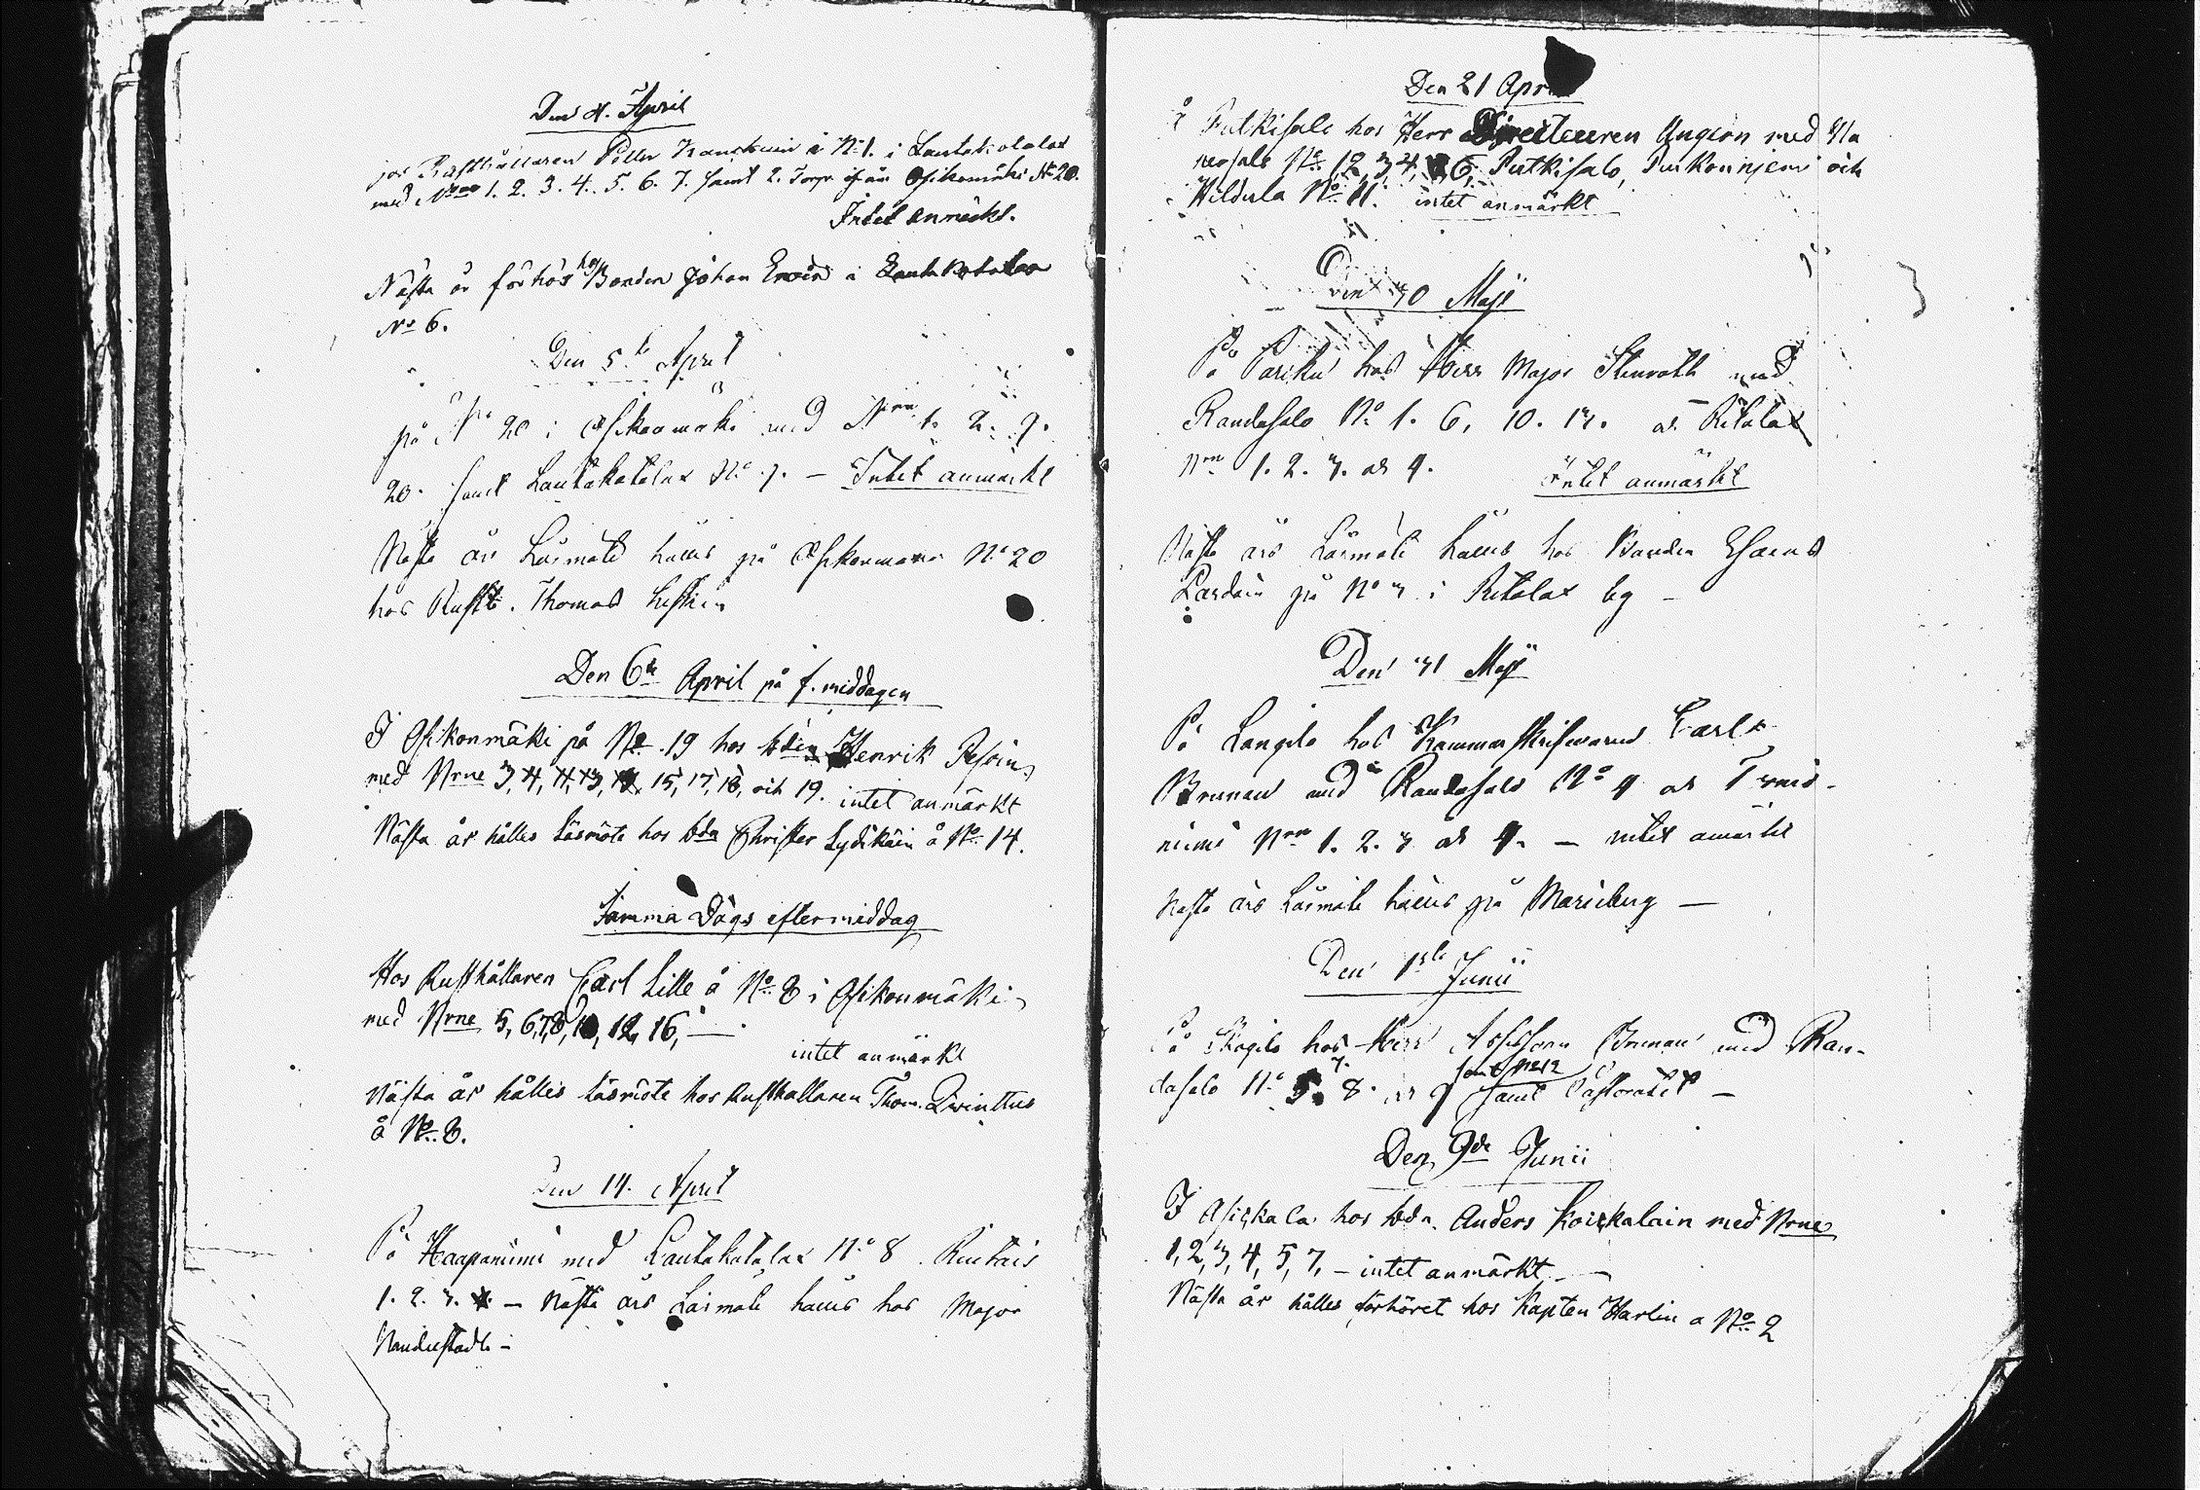 Den 4. April
hos Rusthållaren Petter Kanskain å N:o 1. i Lautakatalax
med N:rne 1. 2. 3. 4. 5. 6. 7. samt 2. Torp ifrån Osikonmäki N:o 20.
Intet anmärkt.
Nästa år förhör hos Bonden Johan å Lautakatalax
N:o 6.
Den 5:te April
på N:o 20 i Osikonmäki med N:rne 1. 2. 9.
20. samt Lautakatalax N:o 7. – Intet anmärkt
Nästa års Läsmöte hålles på Osikonmäki N:o 20
hos Rusth. Thomas
Den 6:te April på f. middagen
I Osikonmäki på N:o 19 hos bden Henrik
med Nrne 3, 4, 11, 13, 15, 17, 18, och 19. intet anmärkt
Nästa år hålles Läsmöte hos bdn Christer Lydikäin å N:o 14.
Samma Dags eftermiddag
Hos Rusthållaren Carl Lille å N:o 8 i Osikonmäki
med Nrne 5, 6, 7, 8, 10, 12, 16, –
intet anmärkt
Nästa år hålles Läsmöte hos Rusthållaren Thom. Qvinttus
å N:o 8.
Den 14. April
På Haapaniemi med Lautakatalax N:o 8. Rantais
1. 2. 3. 4. – Nästa års Läsmöte hålles hos Major
Nandelstadh –
Den 21 April
å Putkisalo hos Herr Directeuren Ungern med Ha
persalo N:o 1, 2, 3, 4, 6, Putkisalo, Turkoniemi och
Hildula N:o 11. intet anmärkt
Den 30 Maji
På Pariku hos Herr Major Stenroth med
Randasalo N:o 1. 6. 10. 13. och Ritalax
N:rne 1. 2. 3. och 4. Intet anmärkt
Nästa års Läsmöte hålles hos Bonden Esaias
på N:o 3 i Ritalax by –
Den 31 Maji
På Langila hos Kammarskrifvaren Carl
Brunau med Randasalo N:o 4 och
niemi N:rne 1. 2. 3 och 4. – intet anmärkt
Nästa års Läsmöte hålles på Marieberg –
Den 1:sta Junii
På Skogila hos Herr Assessorn Brunau med Ran-
dasalo N:o 5. 7. 8. och 9 samt Pastoratet –
Den 9de Junii
I Asikkala hos bdn. Anders Koikkalain med Nrne
1, 2, 3, 4, 5, 7, – intet anmärkt –
Nästa år hålles förhöret hos Kapten Harlin å N:o 2